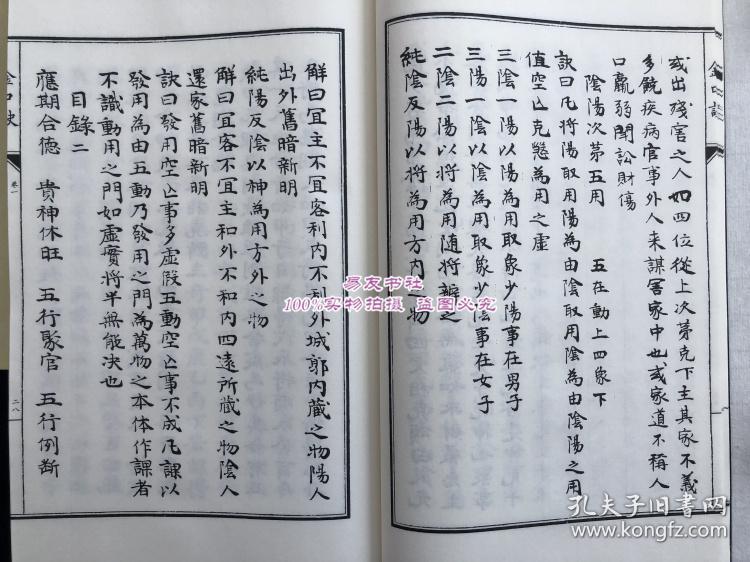 金口訣
或出殘害之人如四位從上次第克下主其家不義
多饒疾病官事外人来謀害家中也或家道不稱人
口羸弱閑訟財傷
陰陽次第五用 五在動上四象下
訣曰凡将陽取用陽為由陰取用陰為由陰陽之用
值空亾克㦤為用之虛
三陰一陽以陽為用取象少陽事在男子
三陽一陰以陰為用取象少陰事在女子
二陰二陽以將為用随將辨之
純陰反陽以將為用方内之物
觧曰宜主不宜客利内不利外城郭内藏之物陽人
出外舊暗新明
純陽反陰以神為用方外之物
觧曰宜客不宜主和外不和内四遠所藏之物陰人
還家舊暗新明
訣曰發用空亾事多虛假五動空亾事不成凡課以
發用為由五動乃發用之門為萬物之本体作課者
不識動用之門如虛實將半無能决也
目錄二
應期合德 貴神休旺 五行聚官 五行例断
卷一
二八
易友书社
100%实物拍摄 盗图必究
孔夫子旧书网
www.kongfz.com